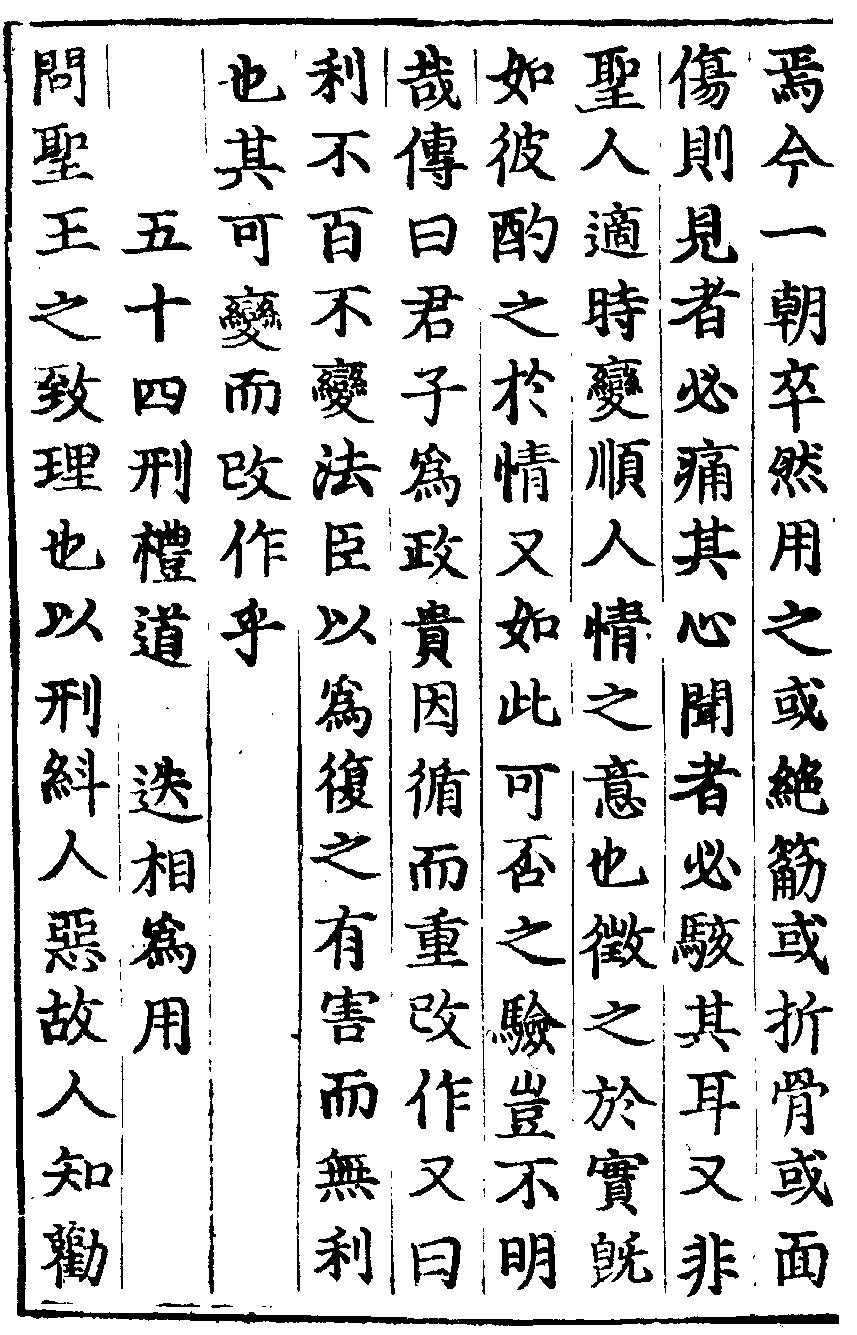 焉今一朝卒然用之或絶筋或折骨或面
傷則見者必痛其心聞者必駭其耳又非
聖人適時變順人情之意也徵之於實既
如彼酌之於情又如此可否之驗豈不明
哉傳曰君子爲政貴因循而重改作又曰
利不百不變法臣以爲復之有害而無利
也其可變而改作乎
五十四刑禮道　迭相爲用
問聖王之致理也以刑糾人惡故人知勸